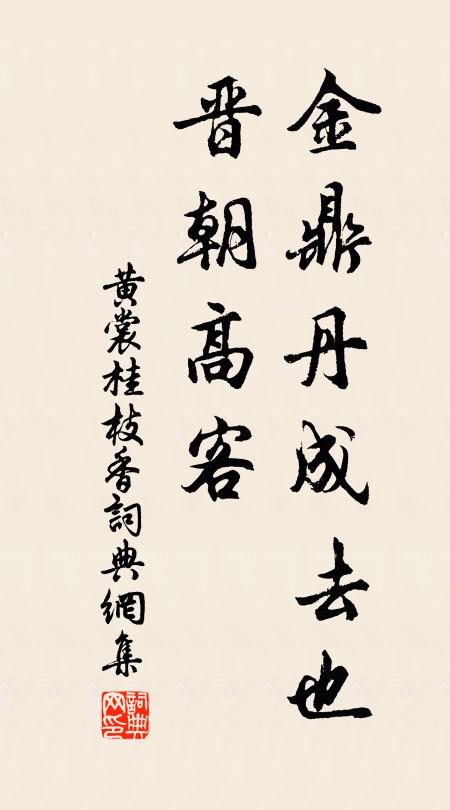 金鼎丹成去也
晋朝高客
黄裳桂枝香詞典網集
詞典网印